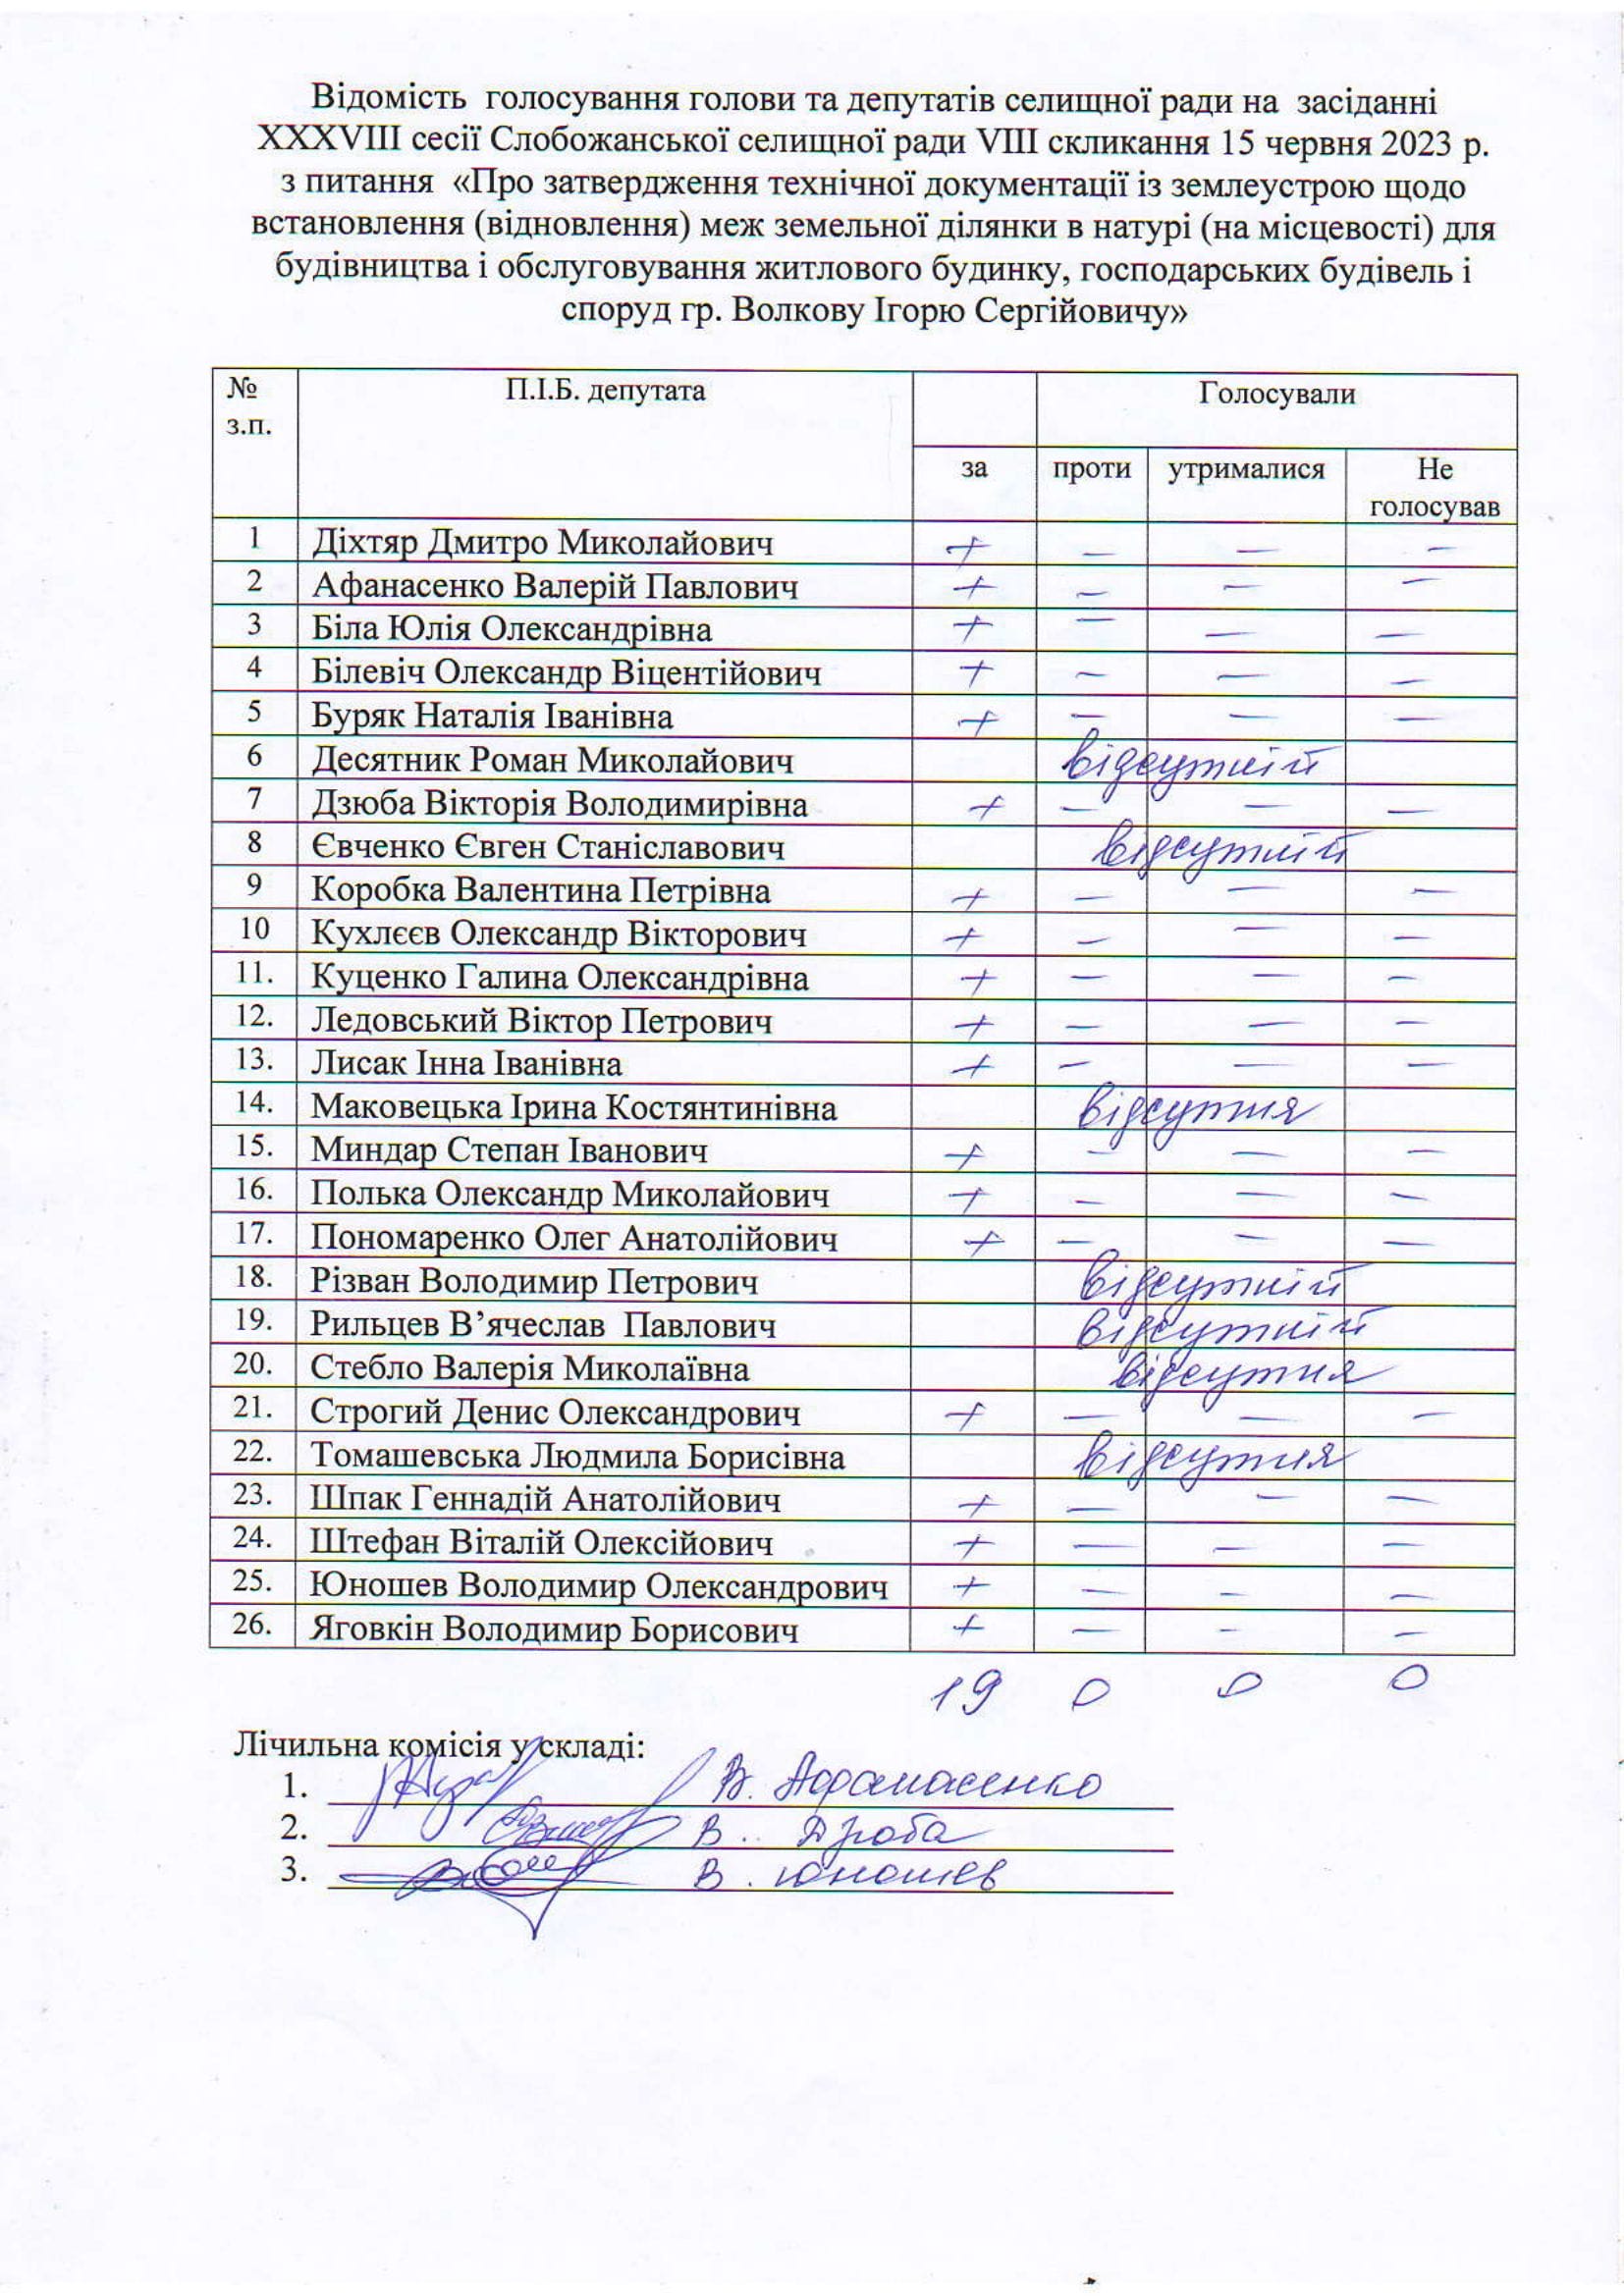 Відомість голосування голови та депутатів селищної ради на засіданні
XXXVIII сесії Слобожанської селищної ради VIII скликання 15 червня 2023 р.
з питання «Про затвердження технічної документації із землеустрою щодо
встановлення (відновлення) меж земельної ділянки в натурі (на місцевості) для
будівництва і обслуговування житлового будинку, господарських будівель і
споруд гр. Волкову Ігорю Сергійовичу»
№ з.п. П.І.Б. депутата Голосували
за проти утрималися Не голосував
1 Діхтяр Дмитро Миколайович + — — —
2 Афанасенко Валерій Павлович + — — —
3 Біла Юлія Олександрівна + — — —
4 Білевіч Олександр Віцентійович + — — —
5 Буряк Наталія Іванівна + — — —
6 Десятник Роман Миколайович відсутній
7 Дзюба Вікторія Володимирівна + — — —
8 Євченко Євген Станіславович відсутній
9 Коробка Валентина Петрівна + — — —
10 Кухлєєв Олександр Вікторович + — — —
11. Куценко Галина Олександрівна + — — —
12. Ледовський Віктор Петрович + — — —
13. Лисак Інна Іванівна + — — —
14. Маковецька Ірина Костянтинівна відсутня
15. Миндар Степан Іванович + — — —
16. Полька Олександр Миколайович + — — —
17. Пономаренко Олег Анатолійович + — — —
18. Різван Володимир Петрович відсутній
19. Рильцев В’ячеслав Павлович відсутній
20. Стебло Валерія Миколаївна відсутня
21. Строгий Денис Олександрович + — — —
22. Томашевська Людмила Борисівна відсутня
23. Шпак Геннадій Анатолійович + — — —
24. Штефан Віталій Олексійович + — — —
25. Юношев Володимир Олександрович + — — —
26. Яговкін Володимир Борисович + — — —
19 0 0 0
Лічильна комісія у складі:
1. В. Афанасенко
2. В. Дзюба
3. В. Юношев